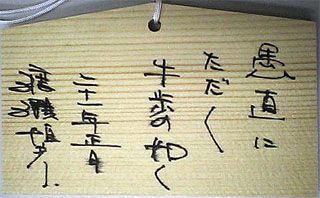 愚直に
ただく
牛歩の如く
二十一年正月